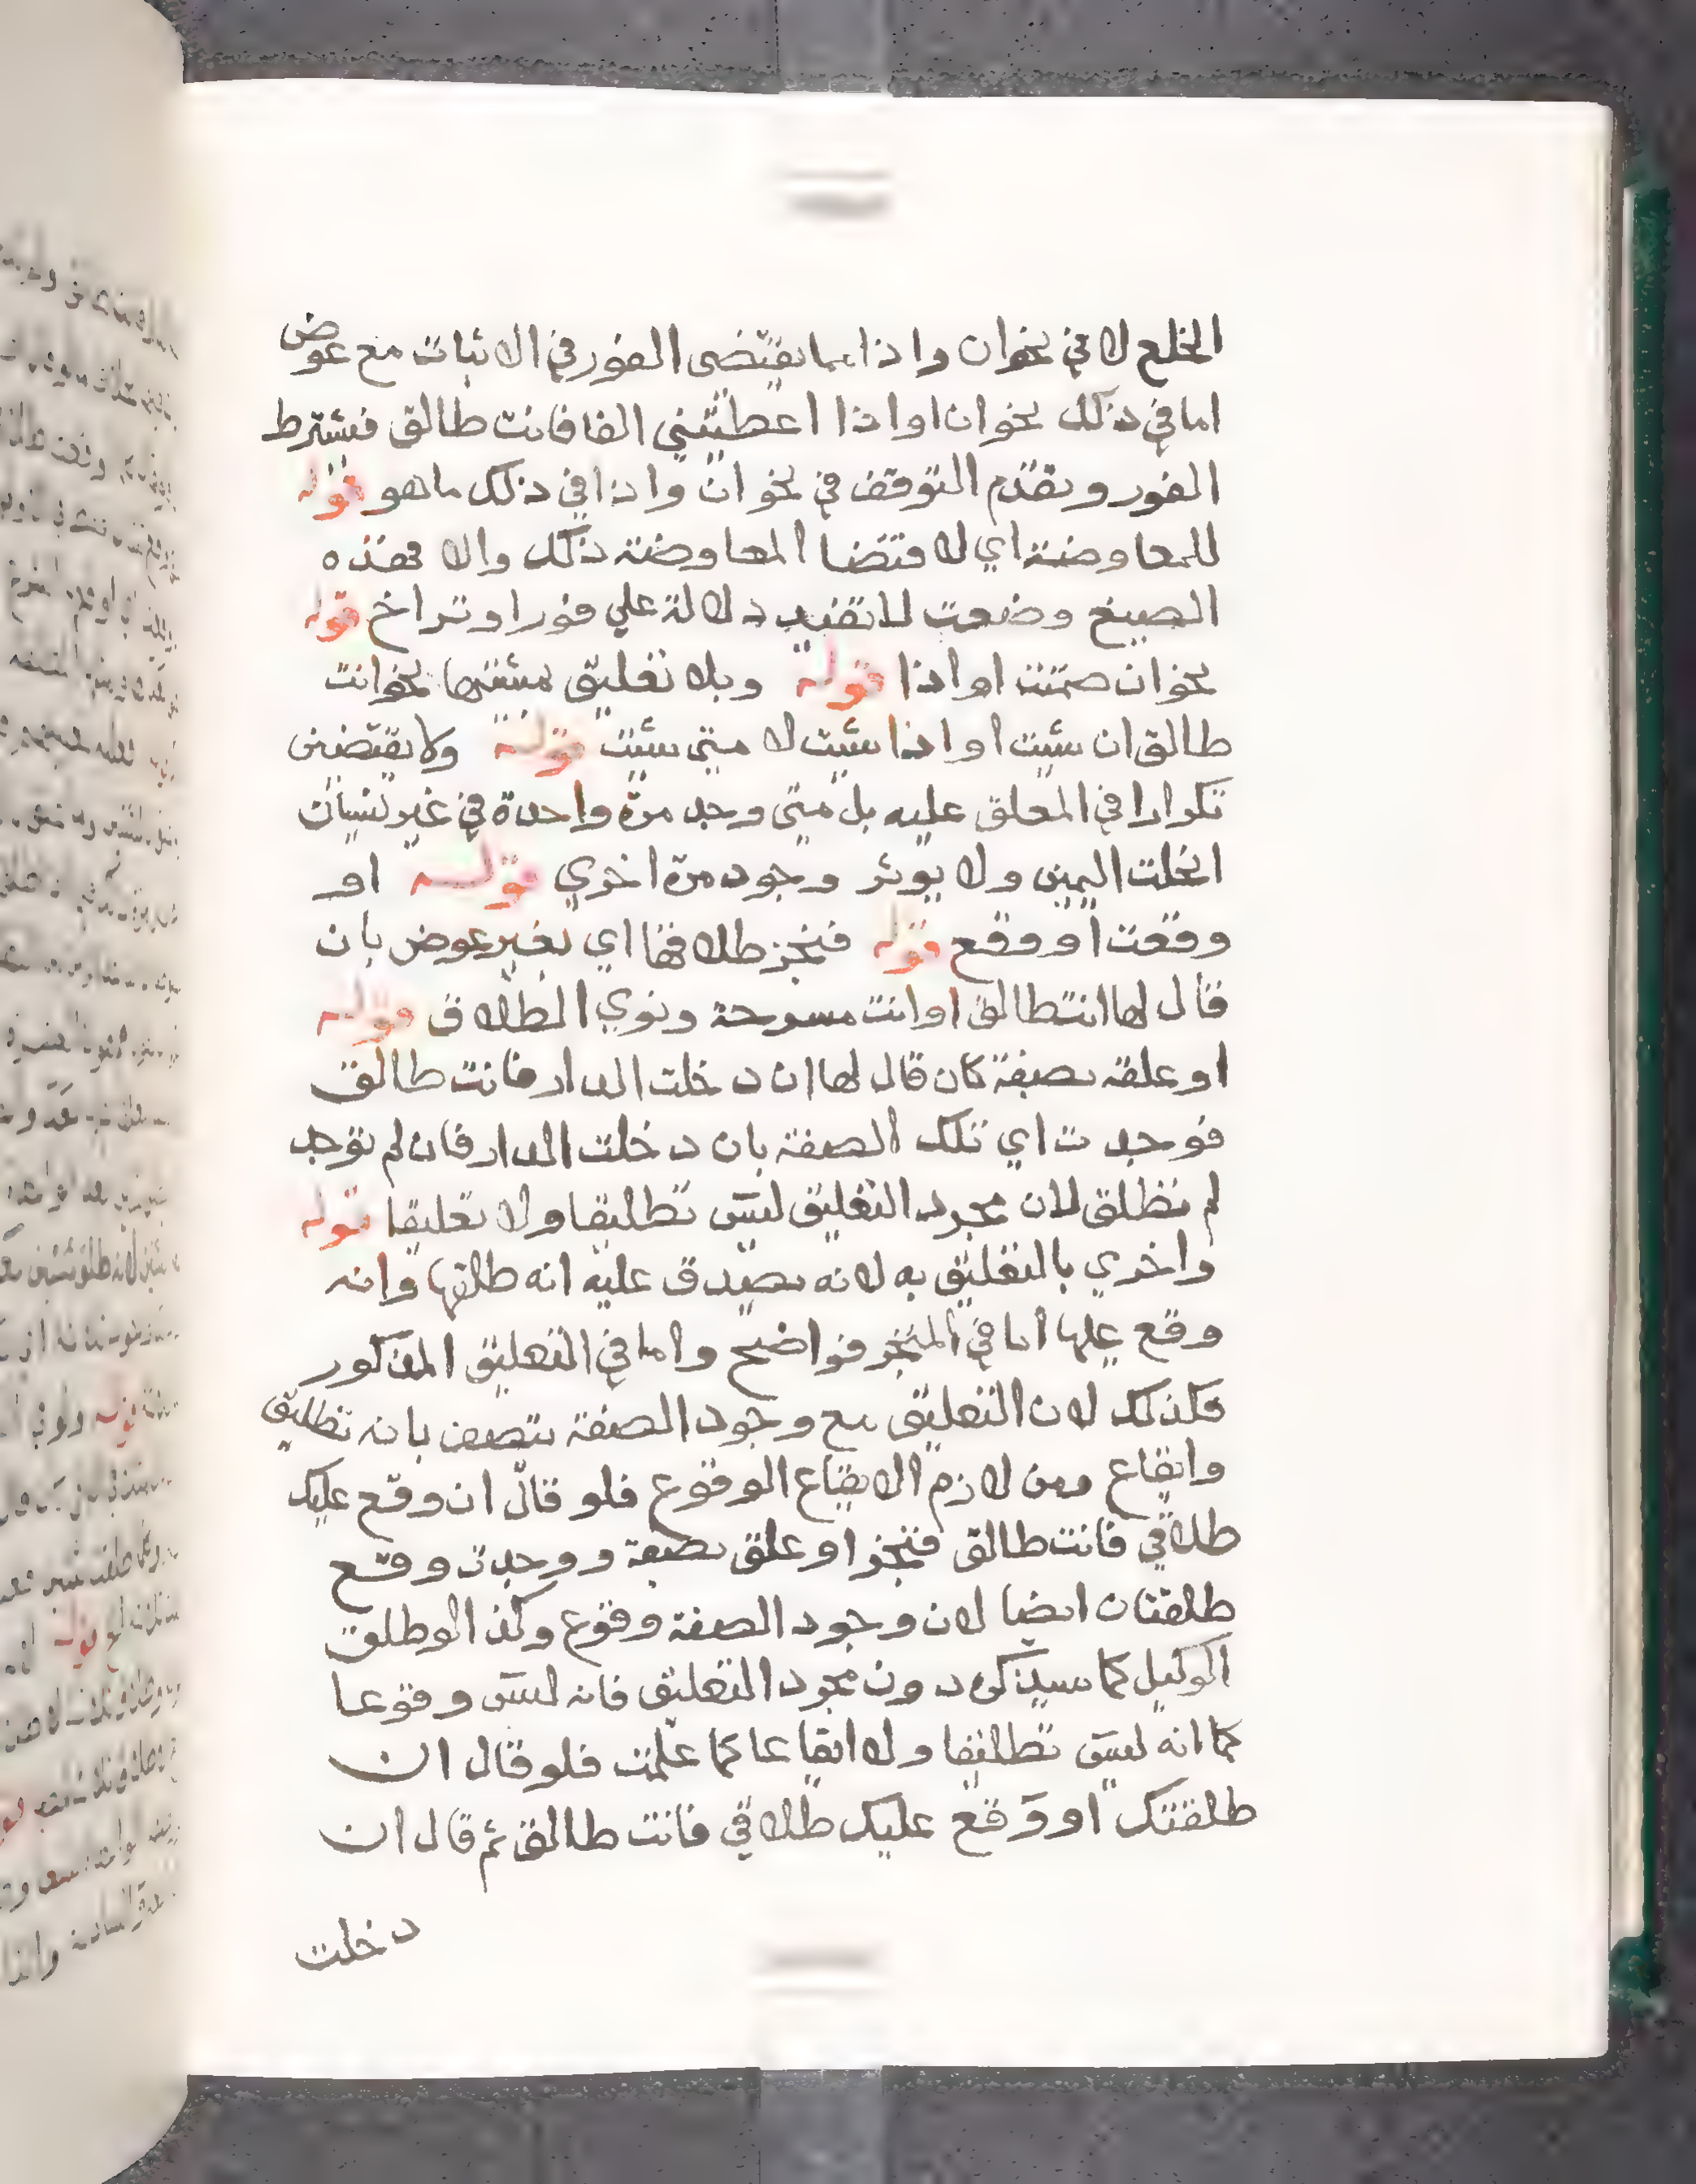 الخلع لا في نحو ان واذا مما يقتضى الفور في الاثبات مع عوض
اما في ذلك نحو ان او اذا اعطيتني الفا فانت طالق فيشترط
الفور وتقدم التوقف في نحو ان واذا في ذلك ما هو قوله
للمعاوضة اي لاقتضا المعاوضة ذلك والا فهذه
الصيغ وضعت لا تفيد دلالة علي فور او تراخ قوله
نحو ان ضمنت او اذا قوله وبلا تعليق بمشئتها نحو انت
طالق ان شئت او اذا شئت لا متي شئت قوله ولا يقتضين
تكرارا في المعلق عليه بل متي وجد مرة واحدة في غير نسيان
انحلت اليمين ولا يوثر وجود مرة اخري قوله او
وقعت او وقع قوله فنجز طلاقها اي بغير عوض بان
قال لها انت طالق او انت مسرحة ونوي الطلاق قوله
او علقه بصفة كان قال لها ان دخلت الدار فانت طالق
فوجدت اي تلك الصفة بان دخلت الدار فان لم توجد
لم تطلق لان مجرد التعليق ليس تطليقا ولا تعليقا قوله
واخري بالتعليق به لانه يصدق عليه انه طلقها وانه
وقع عليها اما في المنجز فواضح واما في التعليق المذكور
فكذلك لان التعليق مع وجود الصفة يتصف بانه تطليق
وايقاع ومن لازم الايقاع الوقوع فلو قال ان وقع عليك
طلاقي فانت طالق فنجز او علق بصفة ووجدت وقع
طلقتان ايضا لان وجود الصفة وقوع وكذا لو طلق
الوكيل كما سيذكره دون مجرد التعليق فانه ليس وقوعا
كما انه ليس تطليقا ولا ايقاعا كما علمت فلو قال ان
طلقتك او وقع عليك طلاقي فانت طالق ثم قال ان
دخلت